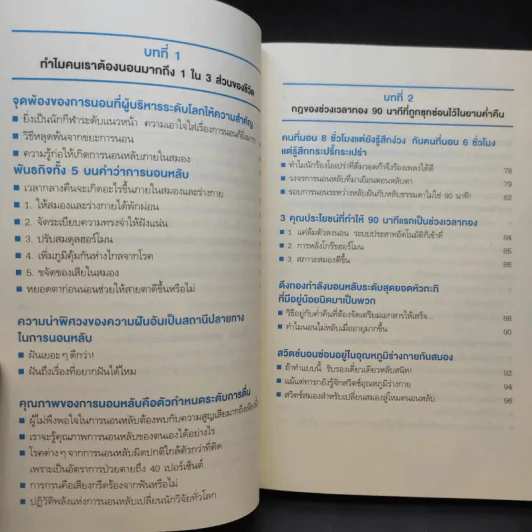 บทที่ 1
ทำไมคนเราต้องนอนมากถึง 1 ใน 3 ส่วนของชีวิต
จุดพ้องของการนอนที่ผู้บริหารระดับโลกให้ความสำคัญ
ยิ่งเป็นนักกีฬาระดับแนวหน้า ความเอาใจใส่เรื่องการนอนก็ยิ่ง
วิธีหลุดพ้นจากขยะการนอน
ความรู้ก่อให้เกิดการนอนหลับภายในสมอง
พันธกิจทั้ง 5 บนคำว่าการนอนหลับ
เวลากลางคืนจะเกิดอะไรขึ้นภายในสมองและร่างกาย
1. ให้สมองและร่างกายได้พักผ่อน
2. จัดระเบียบความทรงจำให้ฝังแน่น
3. ปรับสมดุลฮอร์โมน
4. เพิ่มภูมิคุ้มกันห่างไกลจากโรค
5. ขจัดของเสียในสมอง
หยอดตาก่อนนอนช่วยให้สายตาดีขึ้นหรือไม่
ความน่าพิศวงของความฝันอันเป็นสถานีปลายทาง
ในการนอนหลับ
ฝันเยอะๆ ดีกว่า!
ฝันถึงเรื่องที่อยากฝันได้ไหม
คุณภาพของการนอนหลับคือตัวกำหนดระดับการตื่น
ผู้ไม่พึงพอใจในการนอนหลับต้องพบกับความสูญเสียมากถึง
เราจะรู้คุณภาพการนอนหลับของตนเองได้อย่างไร
โรคต่างๆ จากการนอนหลับผิดปกติใกล้ตัวกว่าที่คิด
เพราะเป็นอัตราการป่วยตายถึง 40 เปอร์เซ็นต์
การกรนคือเสียงกรีดร้องจากฟันหรือไม่
ปฏิวัติพลังแห่งการนอนหลับเปลี่ยนนักวิจัยทั่วโลก
บทที่ 2
กฎของช่วงเวลาทอง 90 นาทีที่ถูกซุกซ่อนไว้ในยามค่ำคืน
คนที่นอน 8 ชั่วโมงแต่ยังรู้สึกง่วง กับคนที่นอน 6 ชั่วโมง
แต่รู้สึกกระปรี้กระเปร่า
ทำไมนักร้องโอเปร่าที่ดื่มวอดก้าจึงร้องเพลงได้ดี 78
วงจรการนอนหลับที่มาเยือนตอนหลับตา 79
รอบการนอนระหว่างหลับฝันกับหลับธรรมดาไม่ใช่ 90 นาที! 82
3 คุณประโยชน์ที่ทำให้ 90 นาทีแรกเป็นช่วงเวลาทอง
1. แค่ล้มตัวลงนอน ระบบประสาทอัตโนมัติก็เข้าที่ 84
2. การหลั่งโกร๊ธฮอร์โมน 85
3. สภาวะสมองดีขึ้น 85
ดึงกองกำลังนอนหลับระดับสุดยอดหัวกะทิ
ที่มีอยู่น้อยนิดมาเป็นพวก
วิธีอยู่กับค่ำคืนที่ต้องจัดเตรียมเอกสารให้เสร็จ... 88
ทำไมนอนไม่หลับเมื่ออายุมากขึ้น 90
สวิตช์นอนซ่อนอยู่ในอุณหภูมิร่างกายกับสมอง
ถ้าทำแบบนี้ รับรองเดี๋ยวเดียวหลับสนิท! 92
แม้แต่ทารกยังรู้จักสวิตช์อุณหภูมิร่างกาย 94
สวิตช์สมองสำหรับเปลี่ยนสมองสู่โหมดนอนหลับ 98